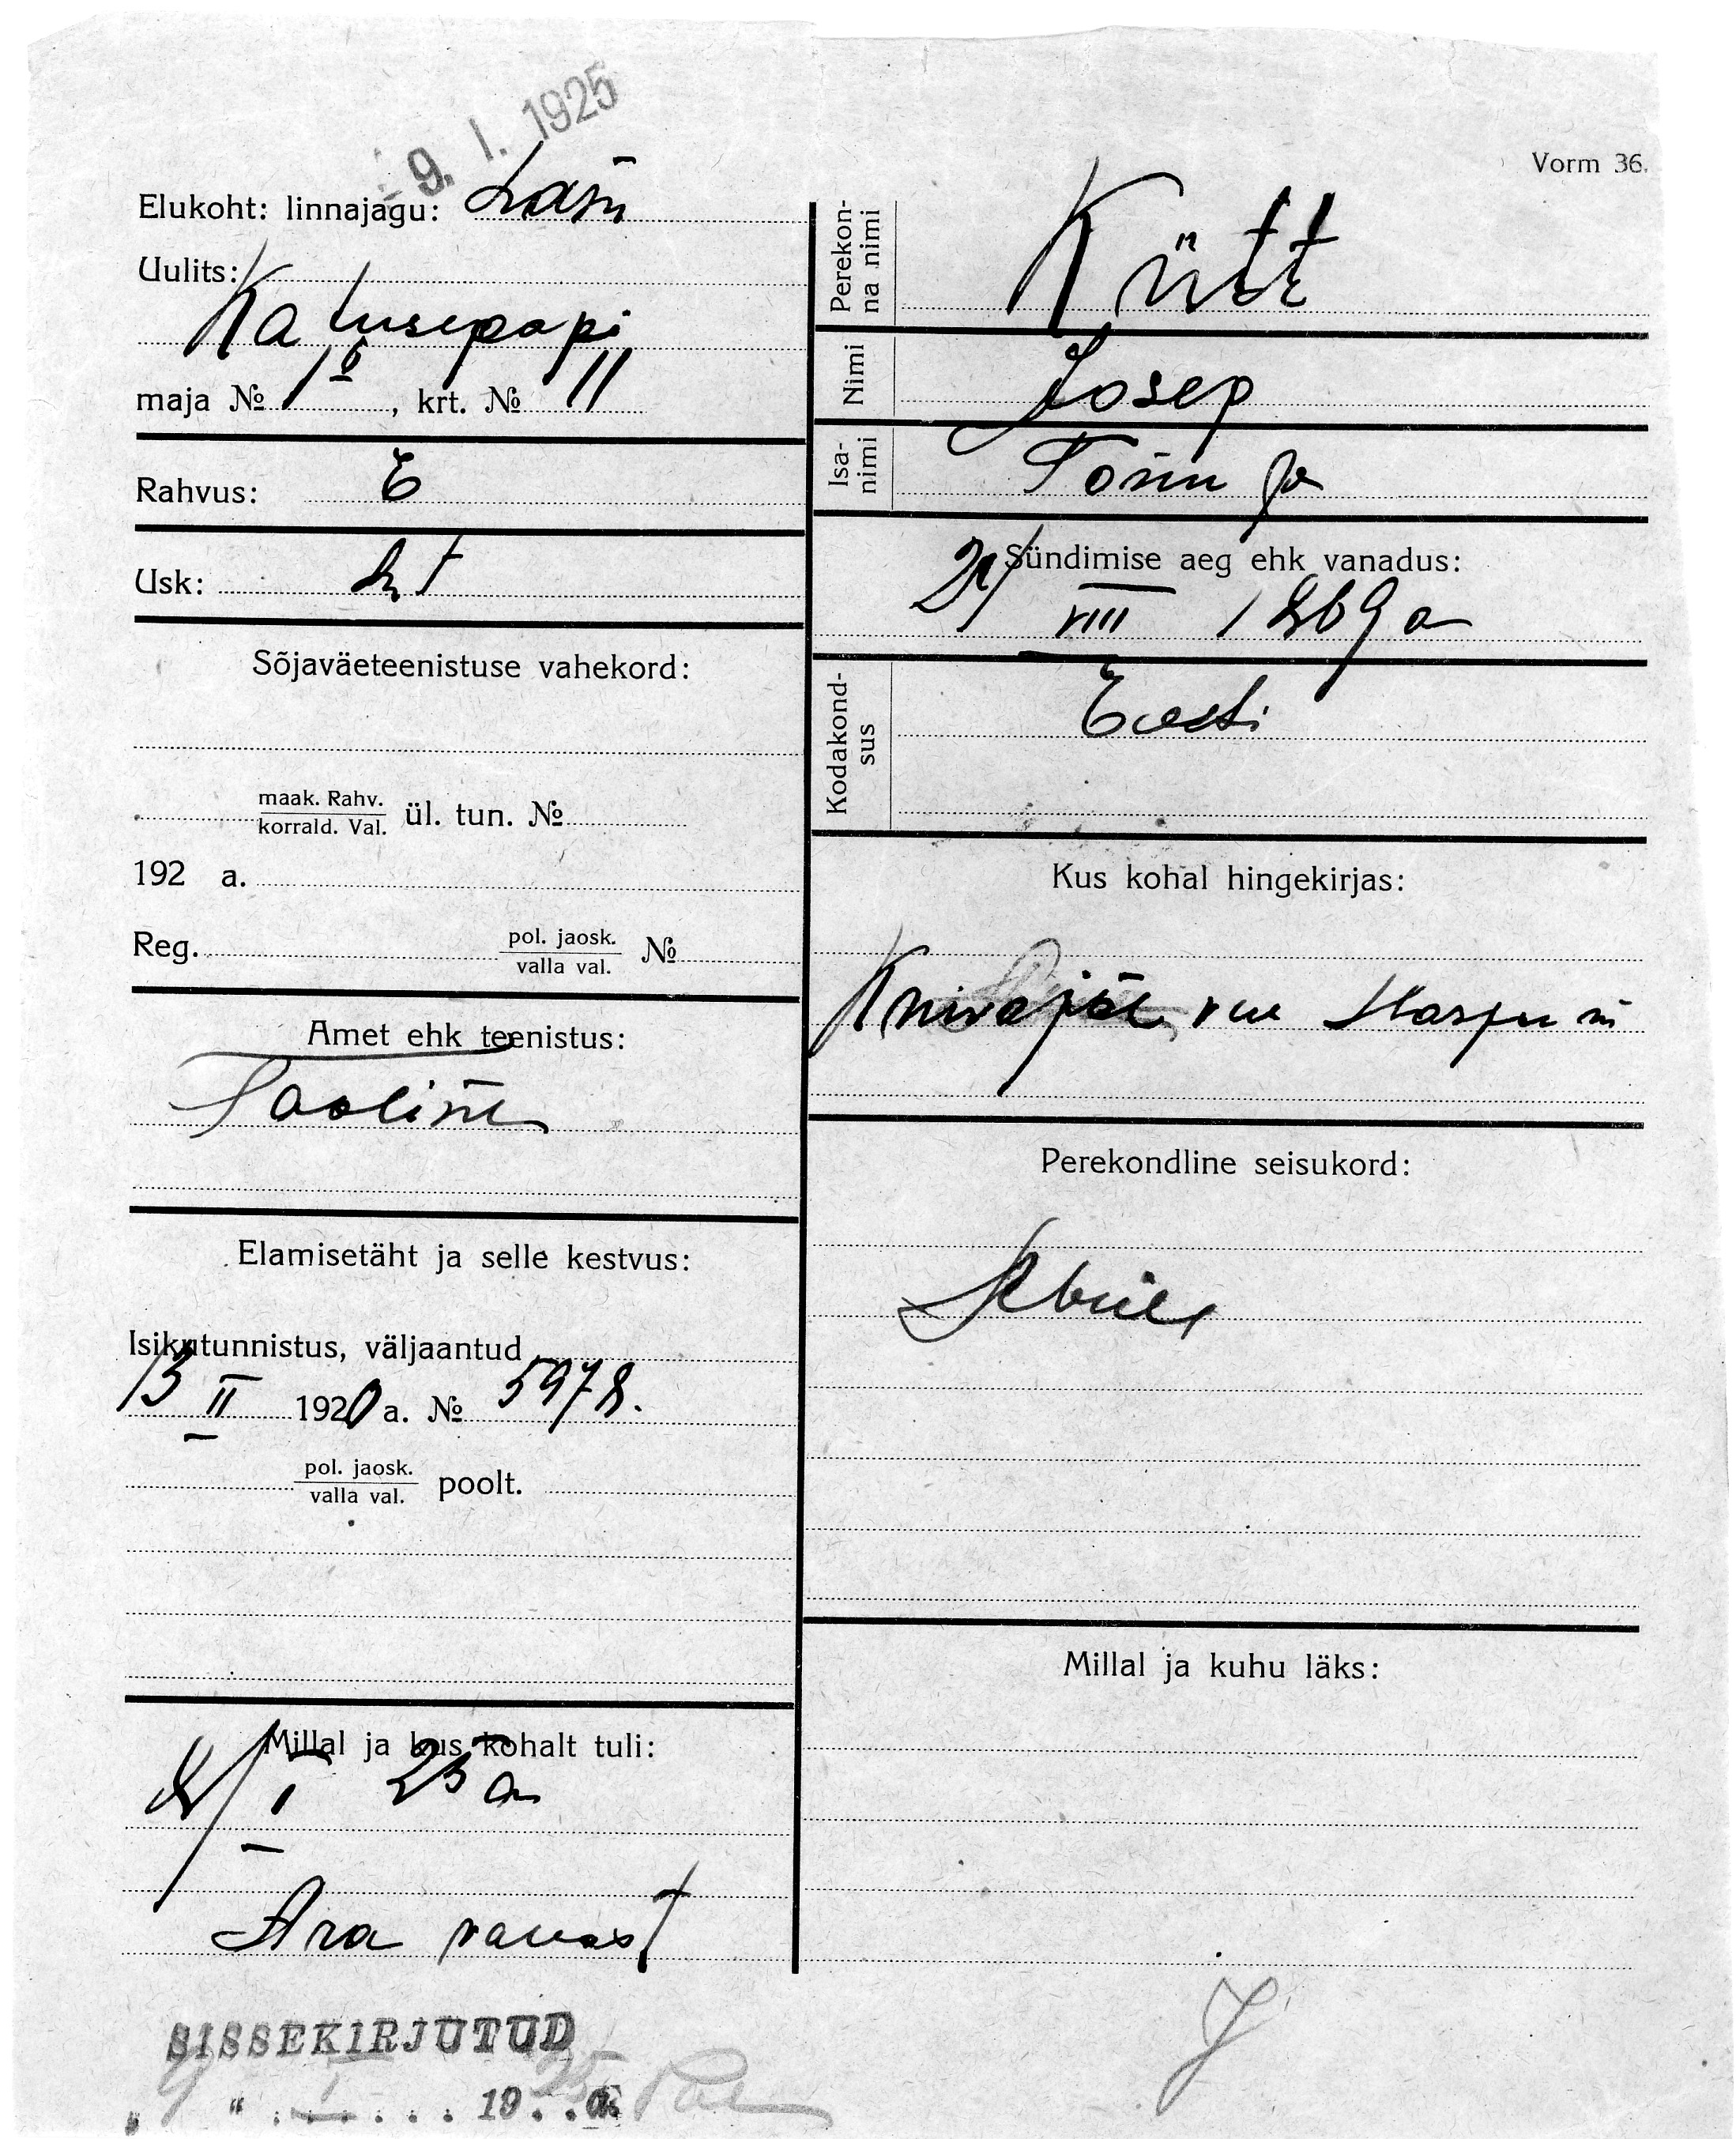 9. I. 1925
Vorm 36.
Elukoht: linnajagu:
Uulits:
Katusepapi
maja № 18, krt. № 11
Rahvus: E
Usk: Lt
Sõjaväeteenistuse vahekord:
maak. Rahv.
korrald. Val. ül. tun. №
192 a.
Reg. pol. jaosk.
valla val. №
Amet ehk teenistus:
Tööline
Elamisetäht ja selle kestvus:
Isikutunnistus, väljaantud
13 II 1920 a. № 5978.
pol. jaosk.
valla val. poolt.
Millal ja kus kohalt tuli:
I 25 a
SISSEKIRJUTUD
9 " I 1925 a.
Perekonna nimi
Kütt
Nimi
Josep
Isanimi
Tõnu
Sündimise aeg ehk vanadus:
VIII 1869 a
Kodakondsus
Eesti
Kus kohal hingekirjas:
Kuivajõe Harju m
Perekondline seisukord:
Abielu
Millal ja kuhu läks: